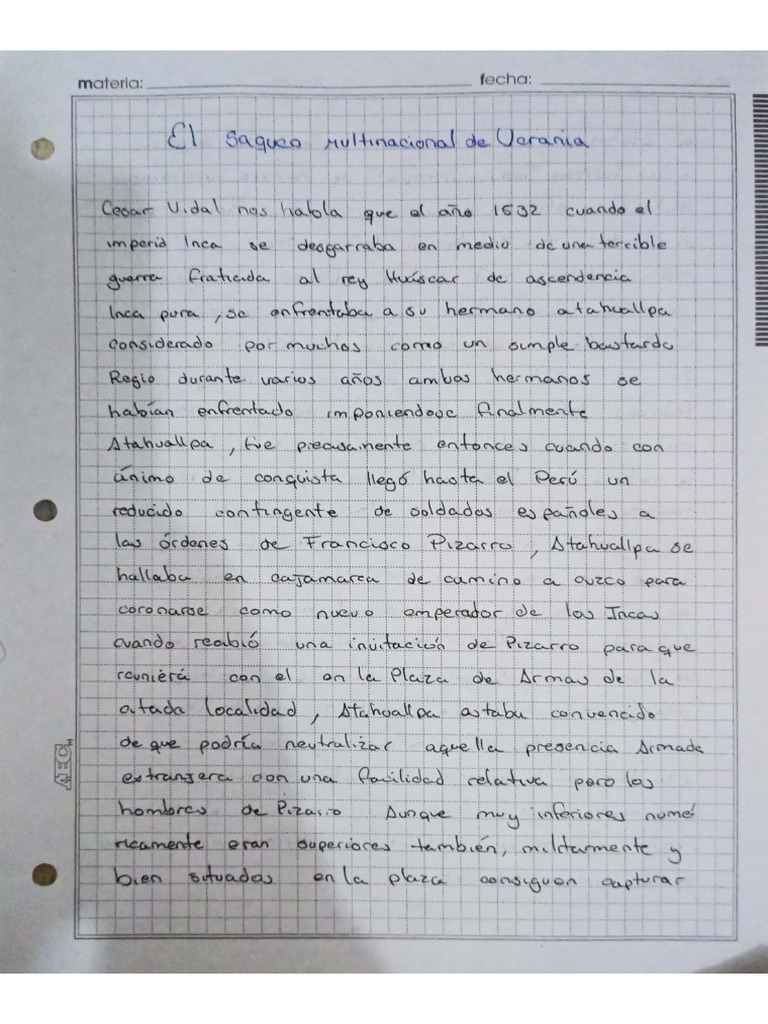 materia: fecha:
El saqueo multinacional de Ucrania
Cesar Vidal nos habla que el año 1532 cuando el
imperio Inca se desgarraba en medio de una terrible
guerra fraticida al rey Huáscar de ascendencia
Inca pura, se enfrentaba a su hermano atahuallpa
considerado por muchos como un simple bastardo
Regio durante varios años ambos hermanos se
habían enfrentado imponiendose finalmente
Atahuallpa, fue precisamente entonces cuando con
ánimo de conquista llegó hasta el Perú un
reducido contingente de soldados españoles a
las órdenes de Francisco Pizarro, Atahuallpa se
hallaba en cajamarca de camino a cuzco para
coronarse como nuevo emperador de los Incas
cuando recibió una invitación de Pizarro para que
reuniérá con el en la Plaza de Armas de la
citada localidad, Atahuallpa estaba convencido
de que podría neutralizar aquella presencia Armada
extranjera con una facilidad relativa pero los
hombres de Pizarro Aunque muy inferiores numé
ricamente eran superiores también, militarmente y
bien situados en la plaza consiguen capturar